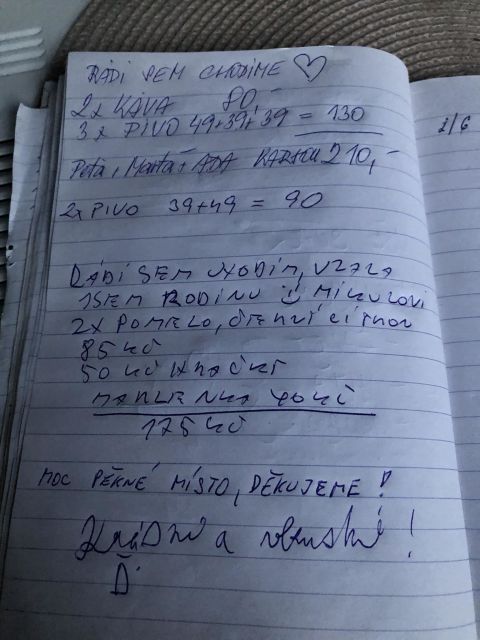 RÁDI SEM CHODÍME ♡
2x KÁVA 80,-
3x PIVO 49+39+39 = 130
Peťa, Marťa ADA 210,-
2x PIVO 39+49 = 90
RÁDI SEM CHODÍM, VZALA
JSEM RODINU
2x POMELO, ČERNÝ CITRON
85 KČ
50 KČ
40 KČ
175 KČ
MOC PĚKNÉ MÍSTO, DĚKUJEME!
Krásné a !
Ď.
2/6